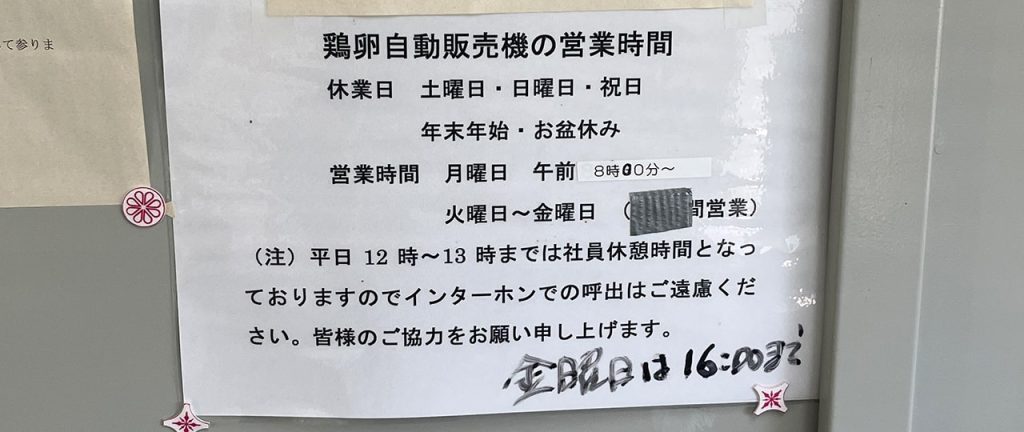 て参りま
鶏卵自動販売機の営業時間
休業日 土曜日・日曜日・祝日
年末年始・お盆休み
営業時間 月曜日 午前 8時00分～
火曜日～金曜日 （ 間営業）
（注）平日 12 時～13 時までは社員休憩時間となっ
ておりますのでインターホンでの呼出はご遠慮くだ
さい。皆様のご協力をお願い申し上げます。
金曜日は16:00まで